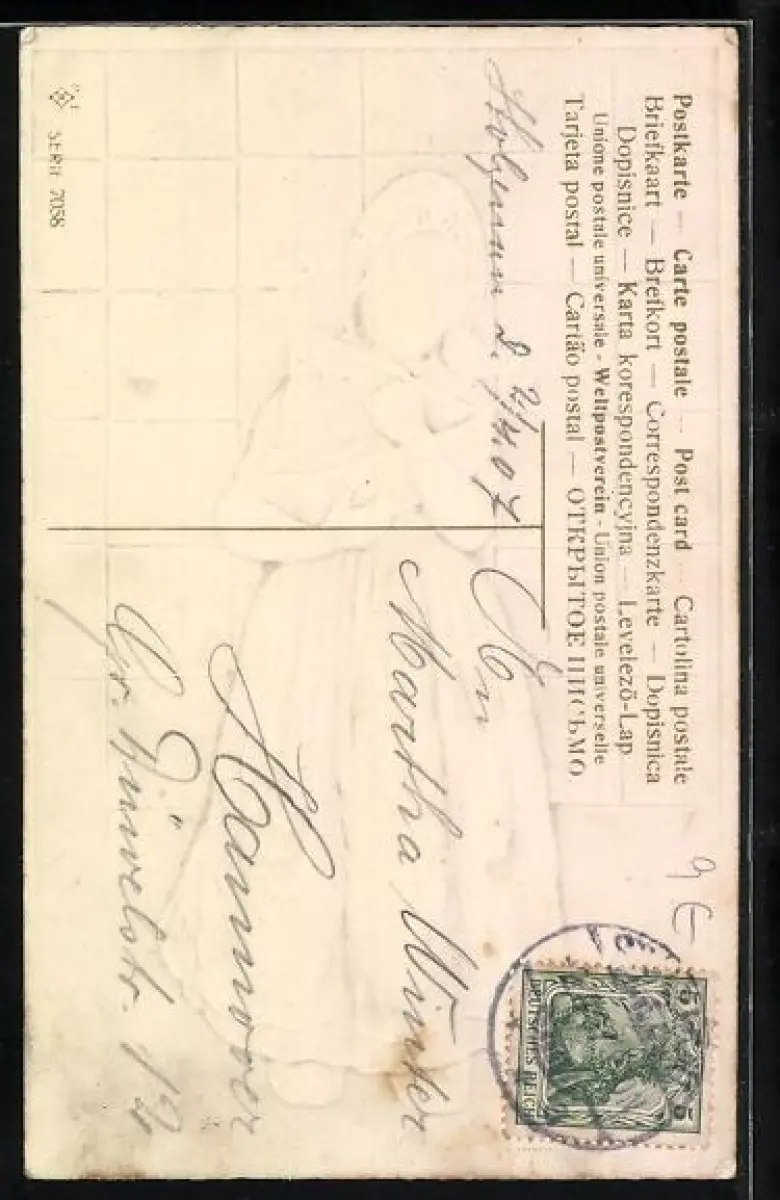 Postkarte — Carte postale — Post card — Cartolina postale
Briefkaart — Brefkort — Correspondenzkarte — Dopisnica
Dopisnice — Karta korespondencyjna — Levelező-Lap
Unione postale universale - Weltpostverein - Union postale universelle
Tarjeta postal — Cartão postal — ОТКРЫТОЕ ПИСЬМО
d. 2/4.07
An
Martha Winter
Hannover
Gr. Düvelstr. 12
9 €
5 5
DEUTSCHES REICH
SERIE 7058